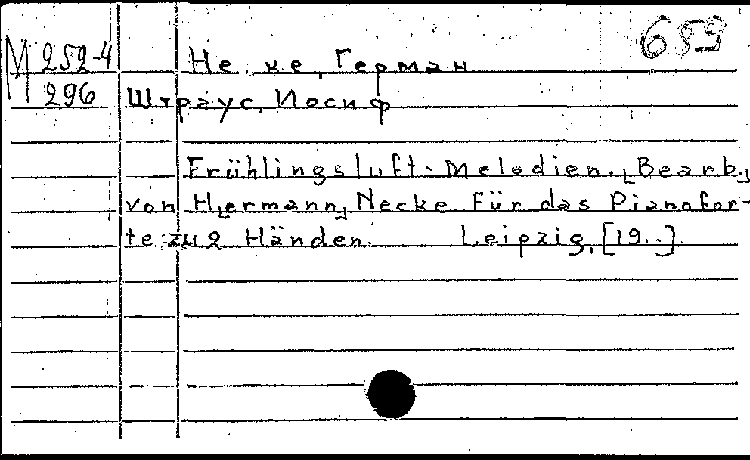 659
М 252-4
296
Не ке, Герман
Штраус, Иосиф
Frühlingsluft-Melodien. [Bearb.]
von H[ermann] Necke für das Pianofor-
te zu 2 Händen. Leipzig, [19..]